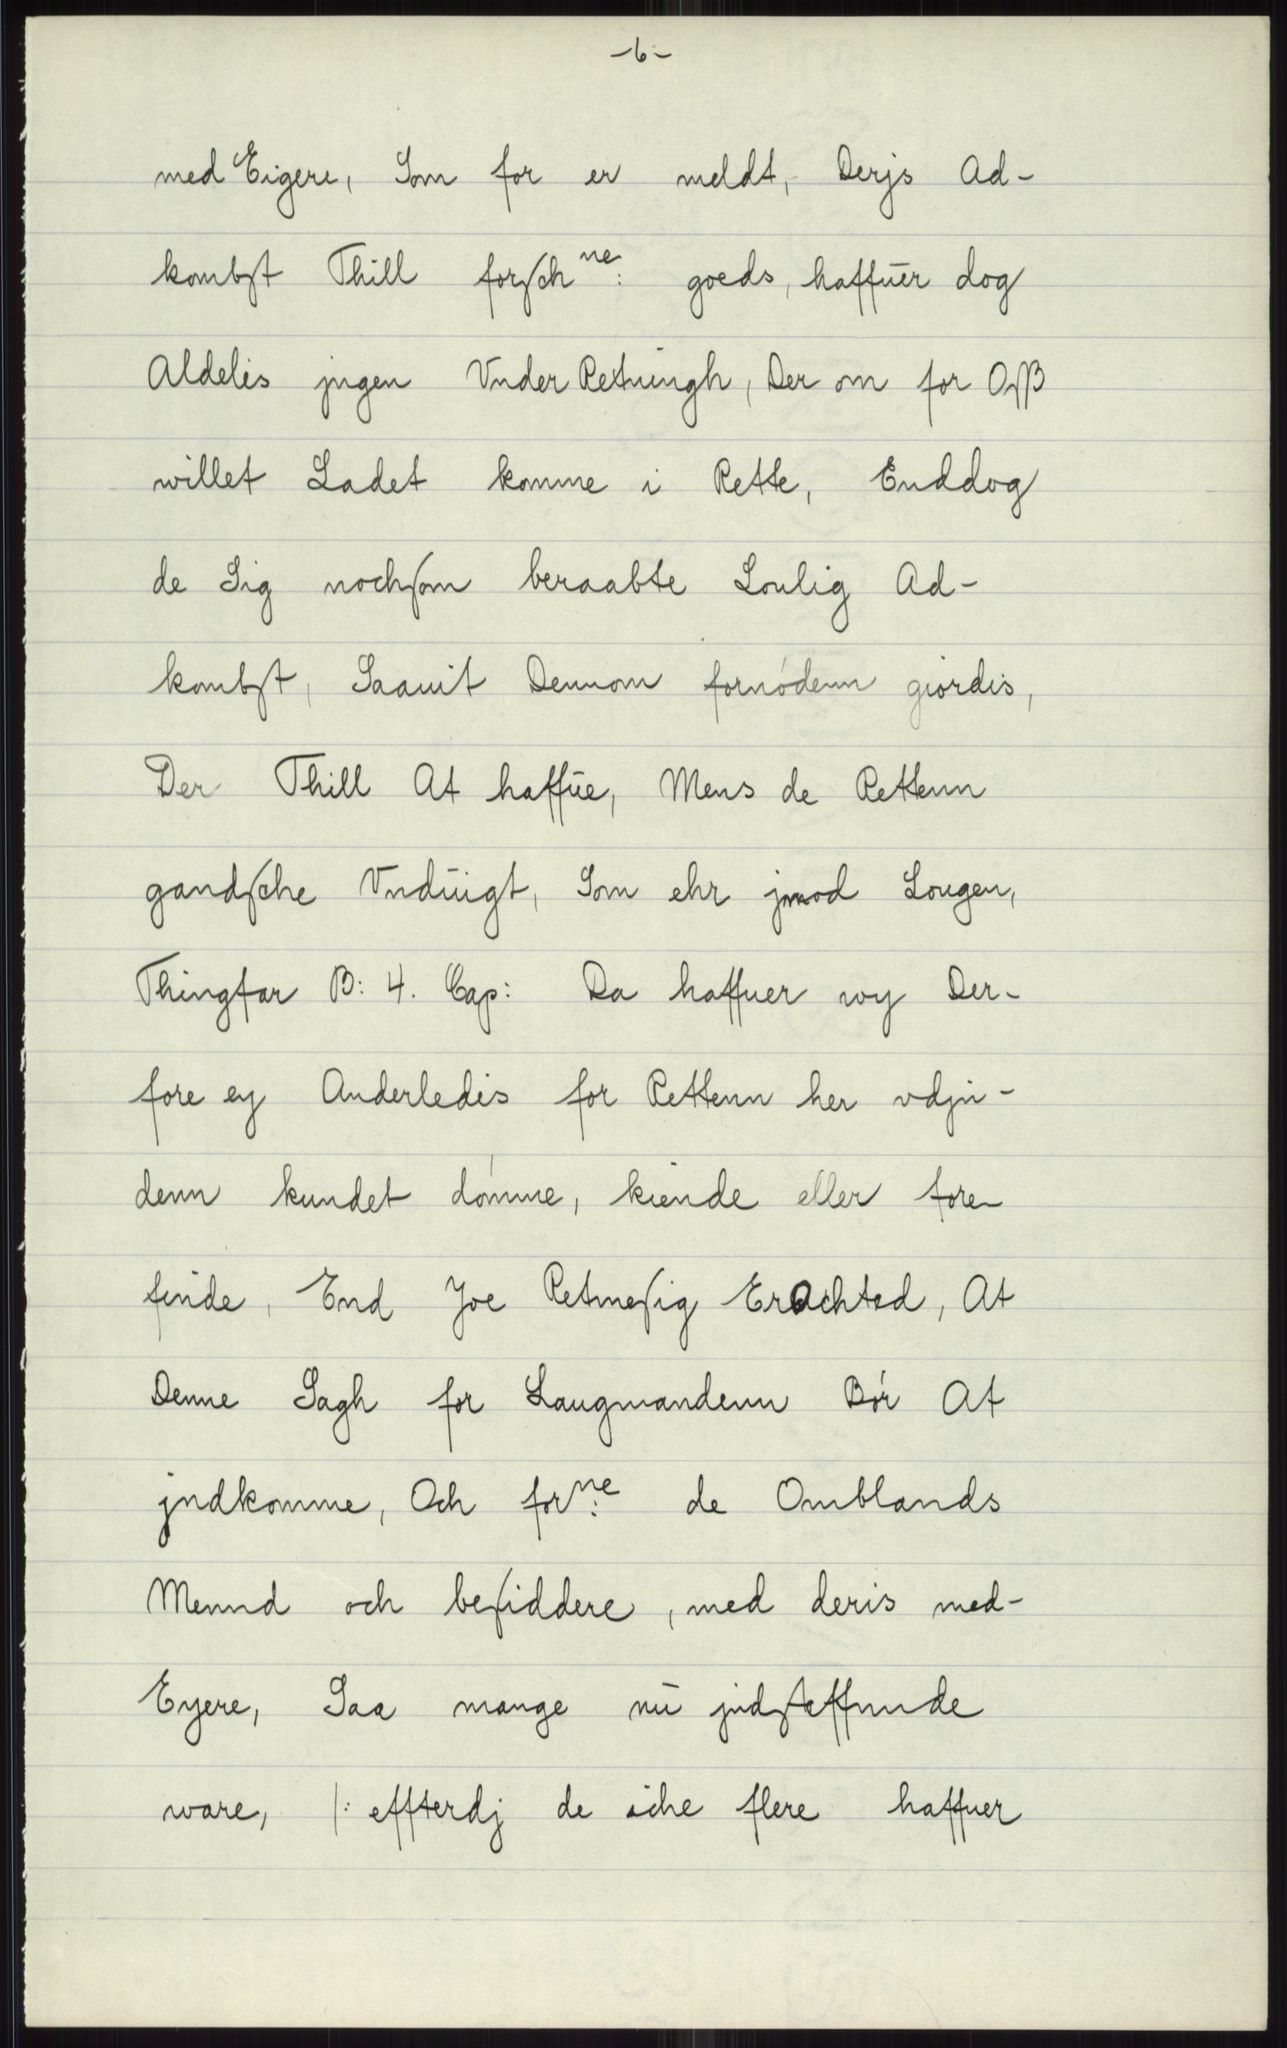 -6-
med Eigere, Som for er meldt, Derjs Ad-
kombst Thill forſch ne: goeds, haffuer dog
Aldelis jngen Vnder Retningh, Der om for Oſß
willet Ladet komme i Rette, Enddog
de Sig nochſom beraabte Loulig Ad-
kombst, Saauit Dennom fornódenn giordis,
Der Thill At haffūe, Mens de Rettenn
gandſche Vnduigt, Som ehr jmod Lougen,
Thingfar B: 4. Cap: Da haffuer wy Der-
fore ey Anderledis for Rettenn her vdjn-
denn kundet dómme, kiende eller fore-
finde, End Joe Retmeſig Erachted, At
Denne Sagh for Laugmandenn Bór At
jndkomme, Och for ne: de Omblands
Mennd och beſiddere, med deris med-
Eyere, Saa mange nū jndſteffnnde
ware, /: effterdj de iche flere haffuer